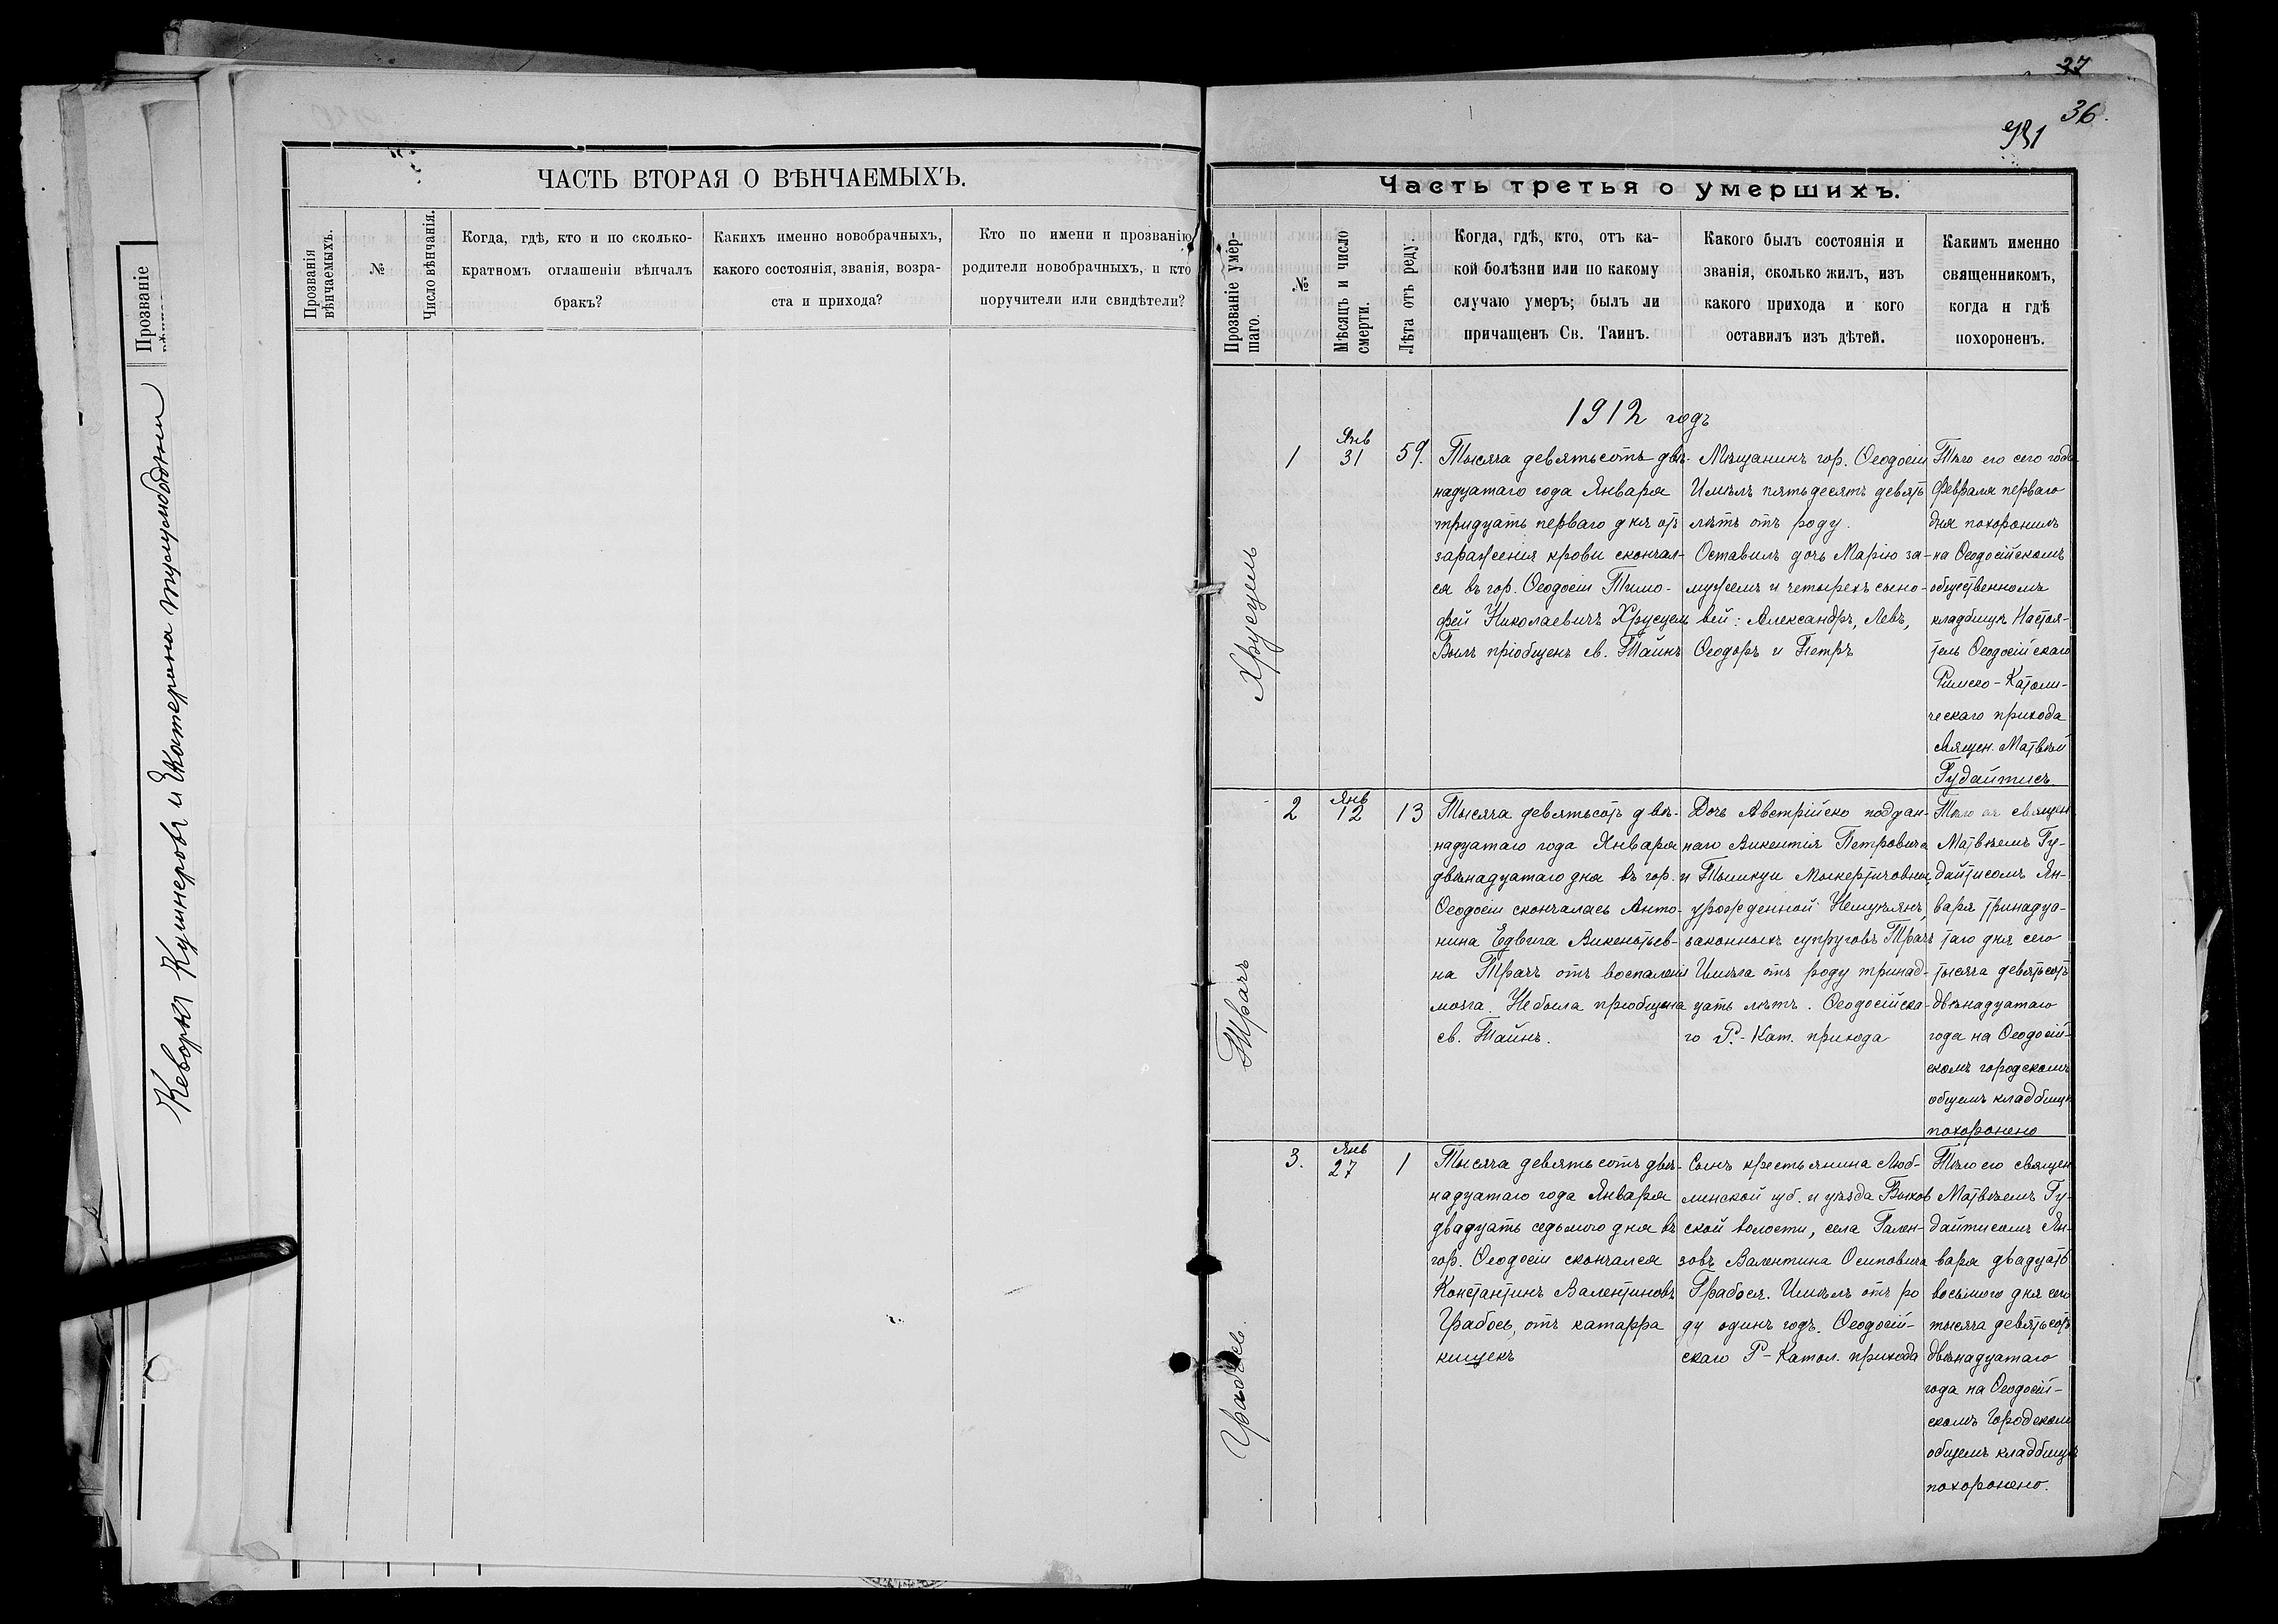 Прозваніе
Кеворкъ Кушнеровъ и Екатерина
ЧАСТЬ ВТОРАЯ О ВѢНЧАЕМЫХЪ.
Прозванія вѣнчаемыхъ.
№
Число вѣнчанія.
Когда, гдѣ, кто и по сколько-
кратномъ оглашеніи вѣнчалъ
бракъ?
Какихъ именно новобрачныхъ,
какого состоянія, званія, возра-
ста и прихода?
Кто по имени и прозванію
родители новобрачныхъ, и кто
поручители или свидѣтели?
27
36.
931
Часть третья о умершихъ.
Прозваніе умер-
шаго.
№
Мѣсяцъ и число
смерти.
Лѣта отъ роду.
Когда, гдѣ, кто, отъ ка-
кой болѣзни или по какому
случаю умеръ; былъ ли
причащенъ Св. Таинъ.
Какого былъ состоянія и
званія, сколько жилъ, изъ
какого прихода и кого
оставилъ изъ дѣтей.
Какимъ именно
священникомъ,
когда и гдѣ
похороненъ.
1912 годъ
Хрусцель
1
Янв
31
59.
Тысяча девятьсотъ двѣ-
надцатаго года Января
тридцать перваго дня отъ
зараженія крови скончал-
ся въ гор. Ѳеодосіи Тимо-
фей Николаевичъ Хрусцель
Былъ пріобщенъ св. Тайнъ
Мѣщанинъ гор. Ѳеодосіи
Имѣлъ пятьдесятъ девять
лѣтъ отъ роду.
Оставилъ дочь Марію за-
мужемъ и четырехъ сыно-
вей: Александръ, Левъ,
Ѳеодоръ и Петръ
Тѣло его сего года
Февраля перваго
дня похоронилъ
на Ѳеодосійскомъ
общественномъ
кладбищѣ Настоя-
тель Ѳеодосійскаго
Римско-Католи-
ческаго прихода
священ. Матвѣй
Гудайтисъ
Трачъ
2
Янв
12
13
Тысяча девятьсотъ двѣ-
надцатаго года Января
двѣнадцатаго дня въ гор.
Ѳеодосіи скончалась Анто-
нина Едвига Викентьев-
на Трачъ отъ воспаленія
мозга. Не была пріобщена
св. Тайнъ.
Дочь Австрійско поддан-
наго Викентія Петровича
и Мкертичовны,
урожденной
законныхъ супруговъ Трачъ
Имѣла отъ роду тринад-
цать лѣтъ. Ѳеодосійска-
го Р.-Кат. прихода
Тѣло ея священ
Матвѣемъ Гу-
дайтисомъ Ян-
варя тринадца-
таго дня сего
тысяча девятьсотъ
двѣнадцатаго
года на Ѳеодосій-
скомъ городскомъ
общемъ кладбищѣ
похоронено
Грабось
3.
Янв
27
1
Тысяча девятьсотъ двѣ-
надцатаго года Января
двадцать седьмого дня въ
гор. Ѳеодосіи скончался
Константинъ Валентиновъ
Грабось, отъ катарра
кишекъ
Сынъ крестьянина Люб-
линской губ. и уѣзда Быхов
ской волости, села Гален-
зовъ Валентина Осиповича
Грабося. Имѣлъ отъ ро
ду одинъ годъ. Ѳеодосій-
скаго Р-Катол. прихода
Тѣло его священ
Матвѣемъ Гу-
дайтисомъ Ян-
варя двадцать
восьмого дня сего
тысяча девятьсотъ
двѣнадцатаго
года на Ѳеодосій-
скомъ Городскомъ
общемъ кладбищѣ
похоронено.